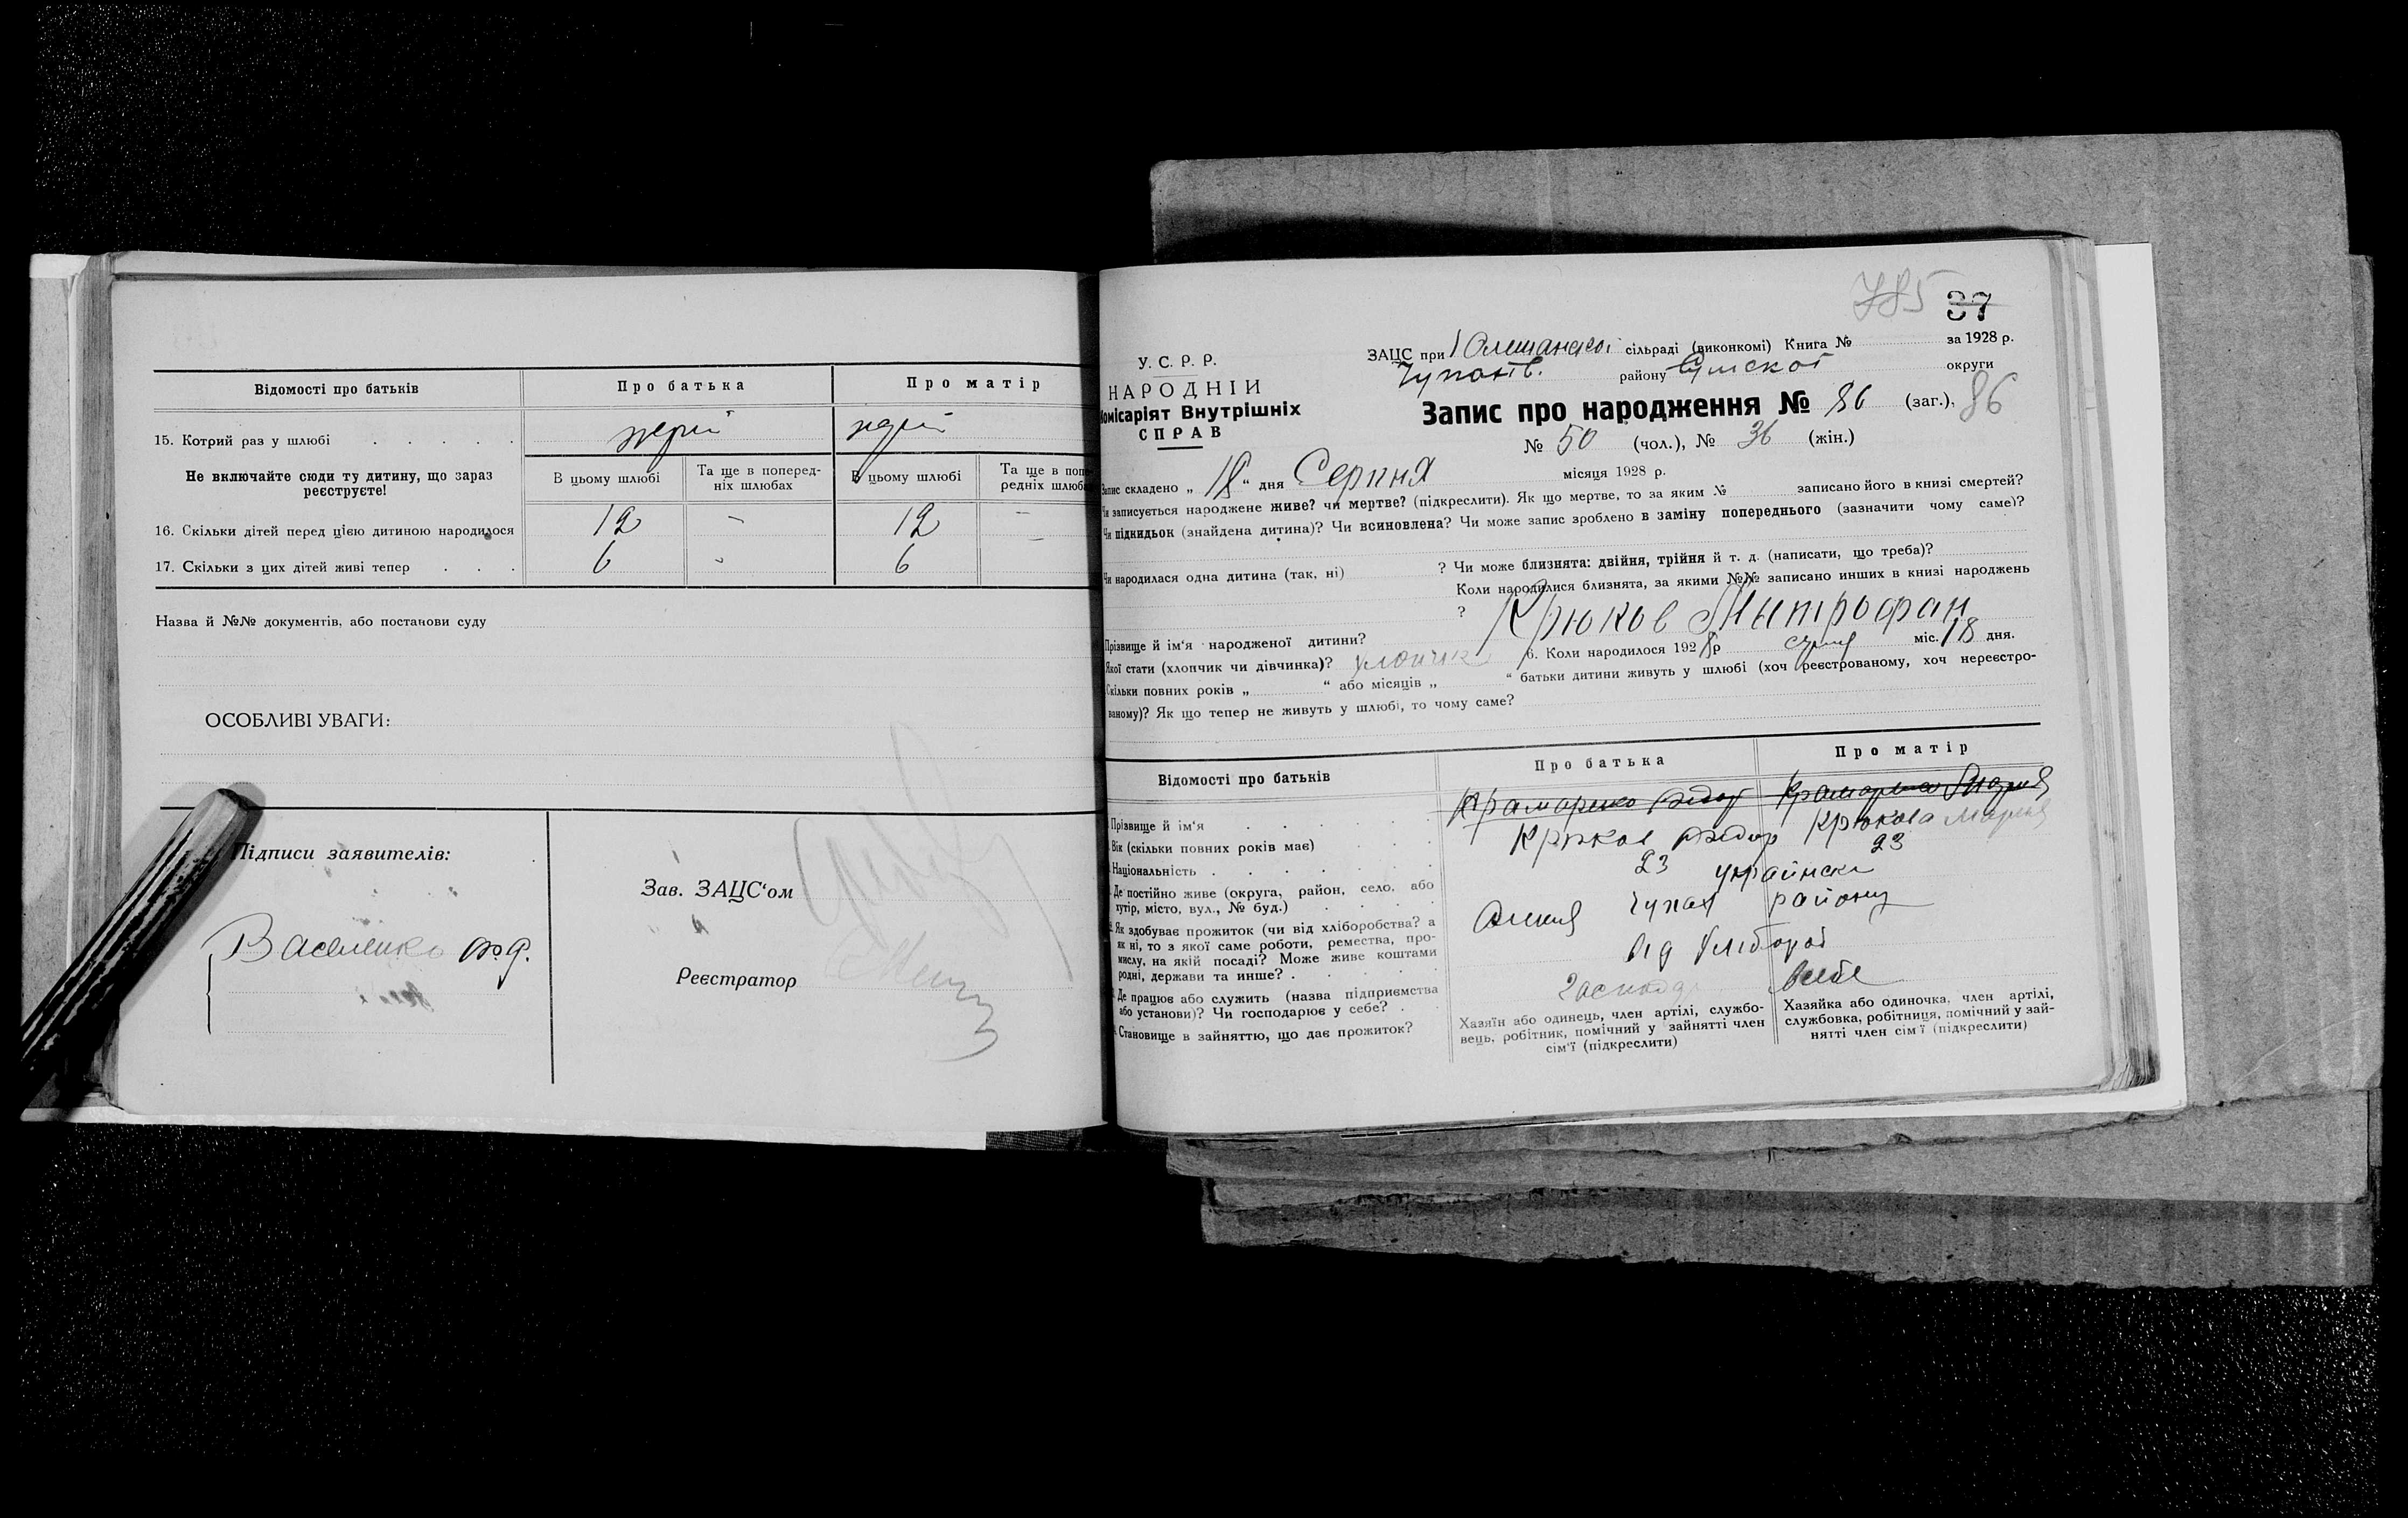 Відомості про батьків
Про батька
Про матір
15. Котрий раз у шлюбі
Не включайте сюди ту дитину, що зараз
реєструєте!
В цьому шлюбі
Та ще в поперед-
ніх шлюбах
В цьому шлюбі
Та ще в попе
редніх шлюб
16. Скільки дітей перед цією дитиною народилося
12 - 12 -
17. Скільки з цих дітей живі тепер
6 - 6 -
Назва й №№ документів, або постанови суду
ОСОБЛИВІ УВАГИ:
Підписи заявителів:
Василенко
Зав. ЗАЦС'ом
Реєстратор
785 37
У. С. Р. Р.
НАРОДНІЙ
Комісаріят Внутрішніх
СПРАВ
ЗАЦС при сільраді (виконкомі) Книга № за 1928 р.
району округи
Запис про народження № 86 (заг.), 86
№ 50 (чол.), № 36 (жін.)
Запис складено „ 18 “ дня Серпня місяця 1928 р.
Чи записується народжене живе? чи мертве? (підкреслити). Як що мертве, то за яким № записано його в книзі смертей?
Чи підкидьок (знайдена дитина)? Чи всиновлена? Чи може запис зроблено в заміну попереднього (зазначити чому саме)?
Чи народилася одна дитина (так, ні) ? Чи може близнята: двійня, трійня й т. д. (написати, що треба)?
Коли народилися близнята, за якими №№ записано инших в книзі народжень
?
Прізвище й ім'я народженої дитини? Крюков Митрофан
Якої стати (хлопчик чи дівчинка)? хлопчик 6. Коли народилося 1928 р міс. 18 дня.
Скільки повних років „ “ або місяців „ “ батьки дитини живуть у шлюбі (хоч реєстрованому, хоч нереєстро-
ваному)? Як що тепер не живуть у шлюбі, то чому саме?
Відомості про батьків
Про батька
Про матір
Крамаренко Федор
Прізвище й ім'я
Крюков Федор Крюкова Мария
Вік (скільки повних років має)
23 23
Національність
українск
Де постійно живе (округа, район, село, або
хутір, місто, вул., № буд.)
Чупах району
Як здобуває прожиток (чи від хліборобства? а
як ні, то з якої саме роботи, ремества, про-
мислу, на якій посаді? Може живе коштами
родні, держави та инше?
Від хлібороб
Де працює або служить (назва підприємства
або установи)? Чи господарює у себе?
господ в себе
Становище в зайняттю, що дає прожиток?
Хазяїн або одинець, член артілі, службо-
вець, робітник, помічний у зайнятті член
сім'ї (підкреслити)
Хазяйка або одиночка, член артілі,
службовка, робітниця, помічний у зай-
нятті член сім'ї (підкреслити)